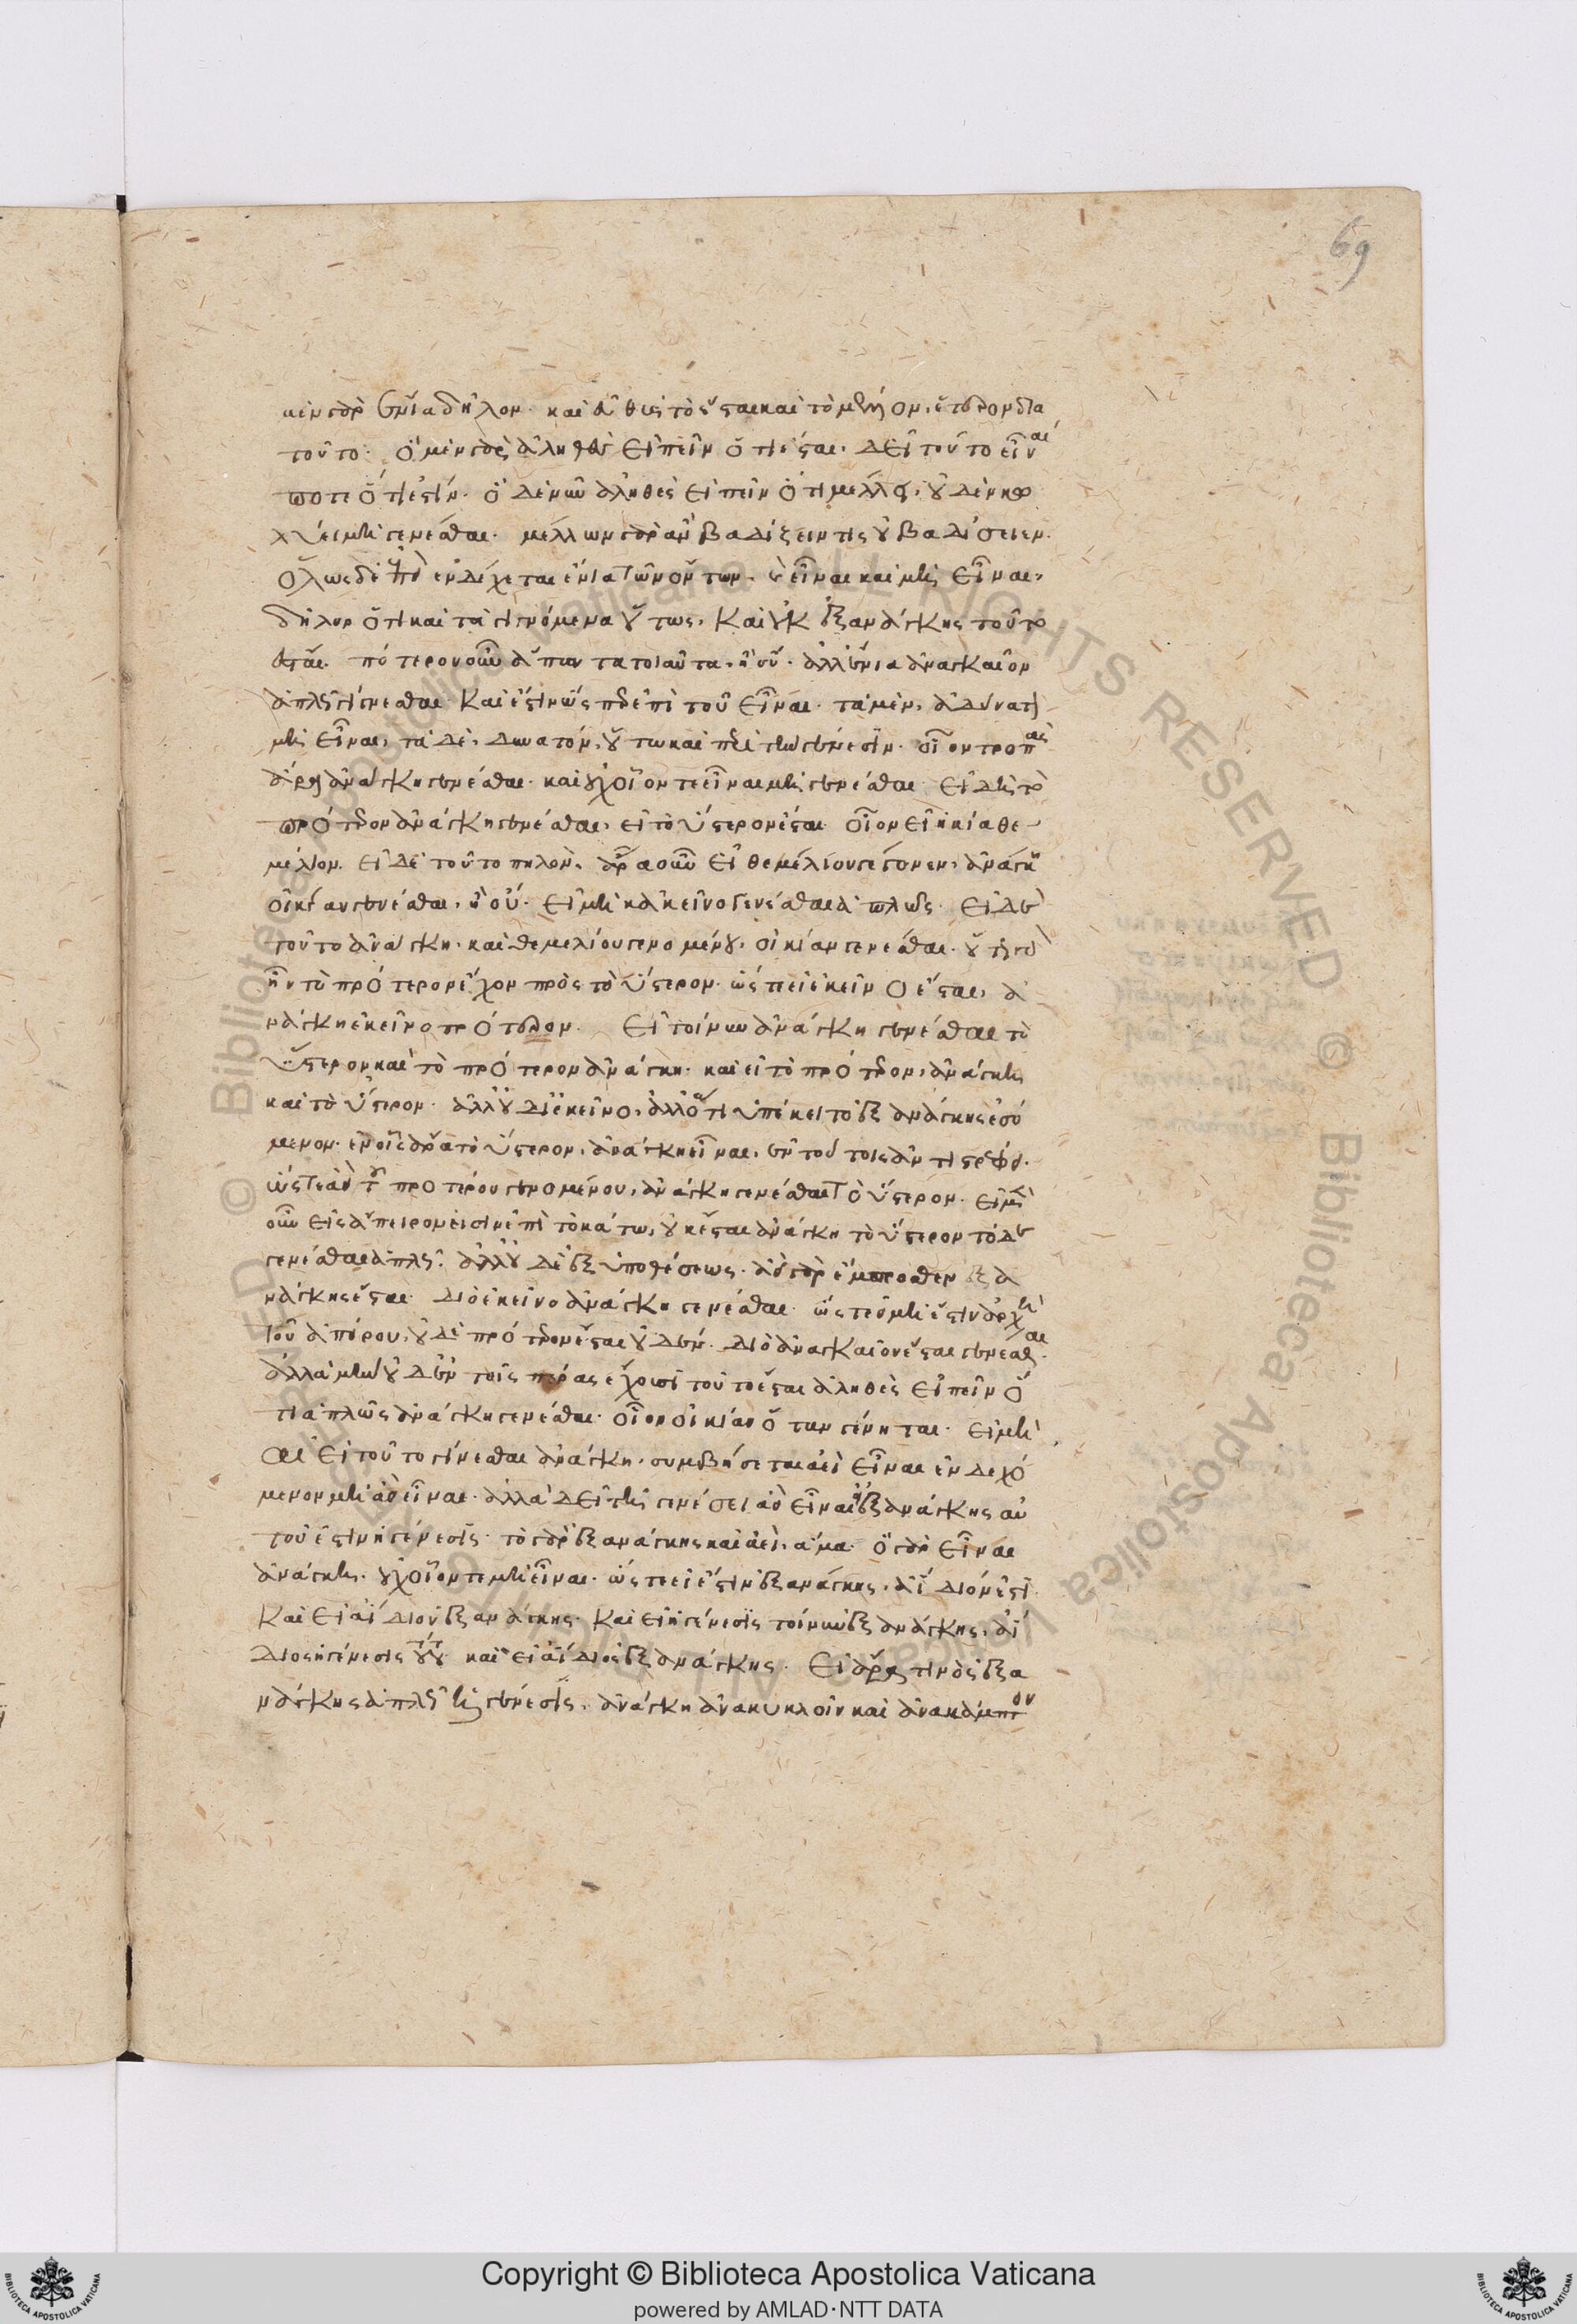 μὲν γὰρ ἔνια δῆλον· καὶ εὐθὺς τὸ ἔσται καὶ τὸ μέλλον, ἕτερον διὰ
τοῦτο· ὃ μὲν γὰρ ἀληθὲς εἰπεῖν ὅτι ἔσται, δεῖ τοῦτο εἶναι
ποτὲ ὅτι ἐστίν. ὃ δὲ νῦν ἀληθὲς εἰπεῖν ὅτι μέλλει, οὐδὲν κω
λύει μὴ γενέσθαι· μέλλων γὰρ ἂν βαδίζειν τις οὐ βαδίσειεν.
Ὅλως δὲ ἐπεὶ ἐνδέχεται ἔνια τῶν ὄντων, καὶ εἶναι καὶ μὴ εἶναι,
δῆλον ὅτι καὶ τὰ γινόμενα οὕτως, καὶ οὐκ ἐξ ἀνάγκης τοῦτο
ἔσται. πότερον οὖν ἅπαντα τοιαῦτα, ἢ οὔ· ἀλλ' ἔνια ἀναγκαῖον
ἁπλῶς γίνεσθαι· καὶ ἔστιν ὥσπερ ἐπὶ τοῦ εἶναι· τὰ μὲν, ἀδύνατα
μὴ εἶναι, τὰ δὲ, δυνατόν, οὕτω καὶ περὶ τὴν γένεσιν. οἷον τροπὰς
ἆρα ἀνάγκη γενέσθαι· καὶ οὐχ οἷόν τε εἶναι μὴ γενέσθαι· εἰ δὴ τὸ
πρότερον ἀνάγκη γενέσθαι, εἰ τὸ ὕστερον ἔσται· οἷον εἰ οἰκία θε
μέλιον. εἰ δὲ τοῦτο πηλόν, ἆρα οὖν εἰ θεμέλιον γέγονεν, ἀνάγκη
οἰκίαν γενέσθαι, ἢ οὔ. εἰ μὴ κἀκεῖνο γενέσθαι ἁπλῶς. εἰ δὲ
τοῦτο ἀνάγκη, καὶ θεμελίου γενομένου, οἰκίαν γενέσθαι. οὕτω γὰρ
ἦν τὸ πρότερον ἔχον πρὸς τὸ ὕστερον. ὥστε εἰ ἐκεῖνο ἔσται, ἀ
νάγκη ἐκεῖνο πρότερον. εἰ τοίνυν ἀνάγκη γενέσθαι τὸ
ὕστερον καὶ τὸ πρότερον ἀνάγκη· καὶ εἰ τὸ πρότερον, ἀνάγκη
καὶ τὸ ὕστερον. ἀλλ' οὐ δι' ἐκεῖνο, ἀλλ' ὅτι ὑπέκειτο ἐξ ἀνάγκης ἐσό
μενον. ἐν οἷς ἄρα τὸ ὕστερον, ἀνάγκη εἶναι, ἐν τούτοις ἀντιστρέφει.
ὥστε ἀεὶ τοῦ προτέρου γενομένου, ἀνάγκη γενέσθαι τὸ ὕστερον. εἰ μὲν
οὖν εἰς ἄπειρον εἰσιν ἐπὶ τὸ κάτω, οὐκ ἔσται ἀνάγκη τὸ ὕστερον τόδε
γενέσθαι ἁπλῶς. ἀλλ' οὐδὲ ἐξ ὑποθέσεως. ἀεὶ γὰρ ἔμπροσθεν ἐξ ἀ
νάγκης ἔσται. διὸ ἐκεῖνο ἀνάγκη γενέσθαι. ὥστε εἰ μή ἐστιν ἀρχὴ
τοῦ ἀπείρου, οὐδὲ πρότερον ἔσται οὐδέν. διὸ ἀναγκαῖον ἔσται γενέσθαι.
ἀλλὰ μὴν οὐδὲν τοῖς πέρας ἔχουσι τοῦτο ἔσται ἀληθὲς εἰπεῖν ὅ
τι ἁπλῶς ἀνάγκη γενέσθαι. οἷον οἰκίαν ὅταν γένηται. εἰ μὴ
ἀεὶ εἰ τοῦτο γίνεσθαι ἀνάγκη. συμβήσεται ἀεὶ εἶναι ἐνδεχό
μενον μὴ ἀεὶ εἶναι. ἀλλὰ δεῖ τῇ γενέσει ἀεὶ εἶναι εἰ ἐξ ἀνάγκης αὐ
τοῦ ἐστιν ἡ γένεσις. τὸ γὰρ ἐξ ἀνάγκης καὶ ἀεὶ, ἅμα. ὃ γὰρ εἶναι
ἀνάγκη, οὐχ οἷόν τε μὴ εἶναι. ὥστε εἰ ἔστιν ἐξ ἀνάγκης, ἀΐδιόν ἐστι.
καὶ εἰ ἀΐδιον ἐξ ἀνάγκης. καὶ εἰ ἡ γένεσις τοίνυν ἐξ ἀνάγκης, ἀΐ
διος ἡ γένεσις τούτου. καὶ εἰ ἀΐδιος ἐξ ἀνάγκης. εἰ ἄρα τινὸς ἐξ ἀ
νάγκης ἁπλῶς ἡ γένεσις, ἀνάγκη ἀνακυκλοῖν καὶ ἀνακάμπτον
69
Copyright © Biblioteca Apostolica Vaticana
powered by AMLAD·NTT DATA